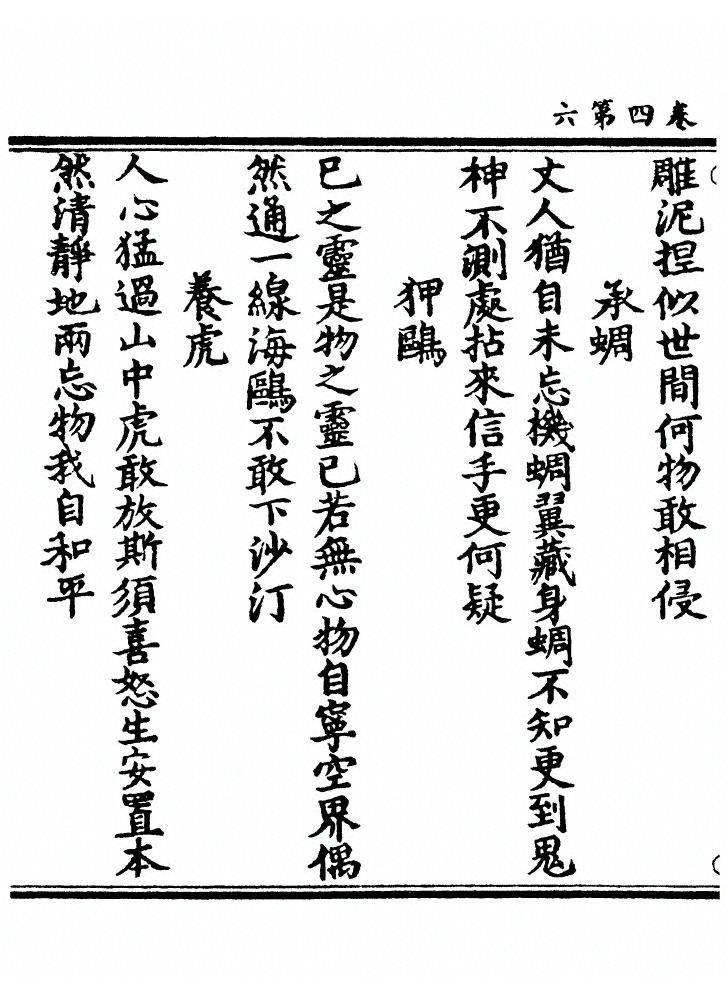 卷四第六
雕泥捏似世間何物敢相侵
承蜩
丈人猶自未忘機蜩翼藏身蜩不知更到鬼
神不測處拈來信手更何疑
狎鷗
己之靈是物之靈已若無心物自寧空界偶
然通一線海鷗不敢下沙汀
養虎
人心猛過山中虎敢放斯須喜怒生安置本
然清靜地兩忘物我自和平